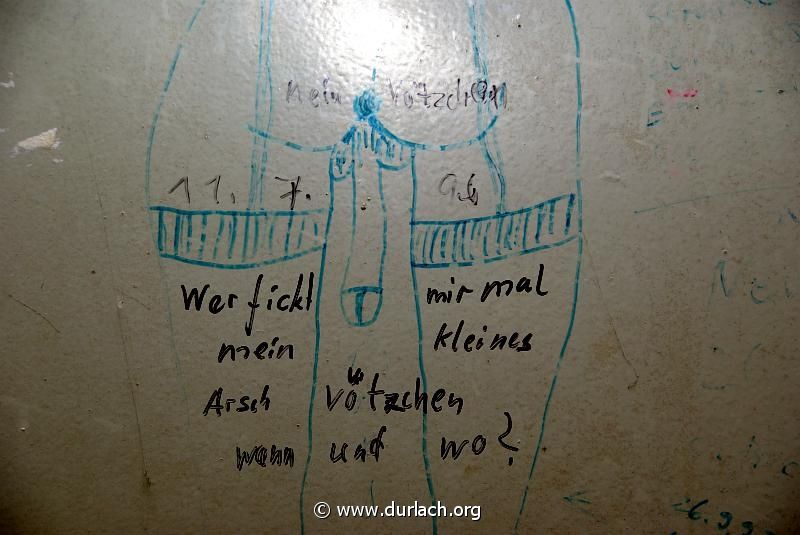 mein Vötzchen
11. 7. 96
Wer fickt mir mal
mein kleines
Arsch Vötzchen
wann und wo?
26.9.9
© www.durlach.org